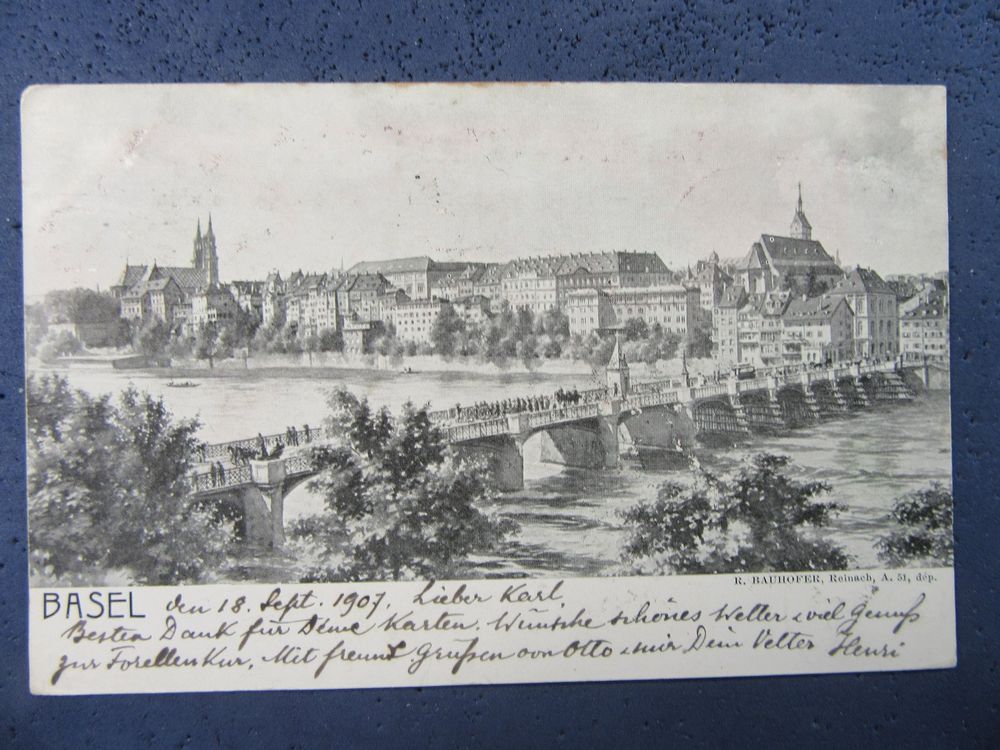 R. BAUHOFER, Reinach, A. 51, dép.
BASEL den 18. Sept. 1907. Lieber Karl,
Besten Dank für Deine Karten. Wünsche schönes Wetter & viel Genuß
zur Forellenkur. Mit freundl Grüßen von Otto & mir Dein Vetter Henri